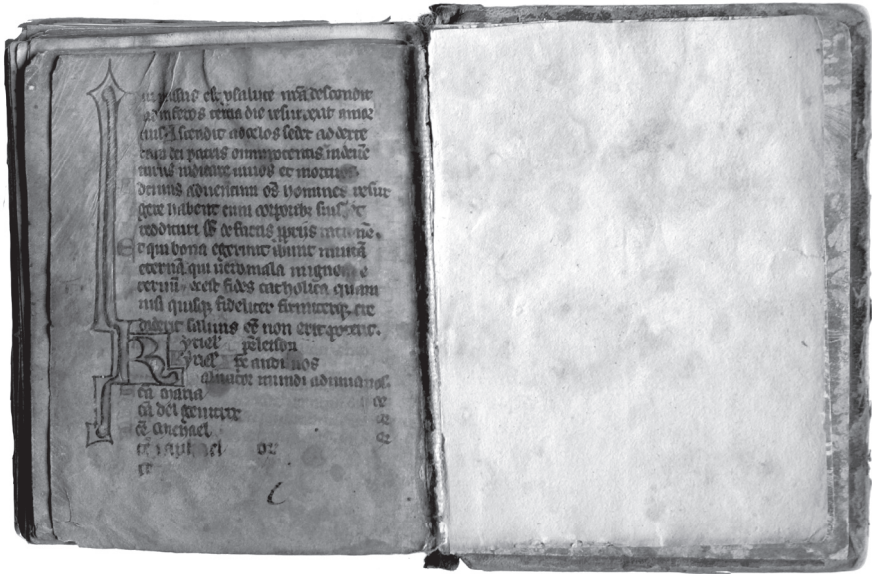 ui passus est p salute nrã descendit
ad inferos tertia die resurrexit a mor
tuis Ascendit ad celos sedet ad dexte
ram dei patris omnipotentis inde uẽ
turus iudicare uiuos et mortuos
cuius aduentum oẽs homines resur
gere habent cum corporibꝫ suis et
reddituri sũt de factis ppriis rationẽ.
Et qui bona egerunt ibunt in uitã
eternã qui uero mala in ignem e
ternũ. hec est fides catholica quam
nisi quisqꝫ fideliter firmiterqꝫ cre
diderit saluus eẽ non erit poterit.
Kyriel xpeleison
kyriel xpe audi nos
aluator mundi adiuua nos.
cã maria or
cã dei genitrix or
cẽ michael or
cẽ raphael or